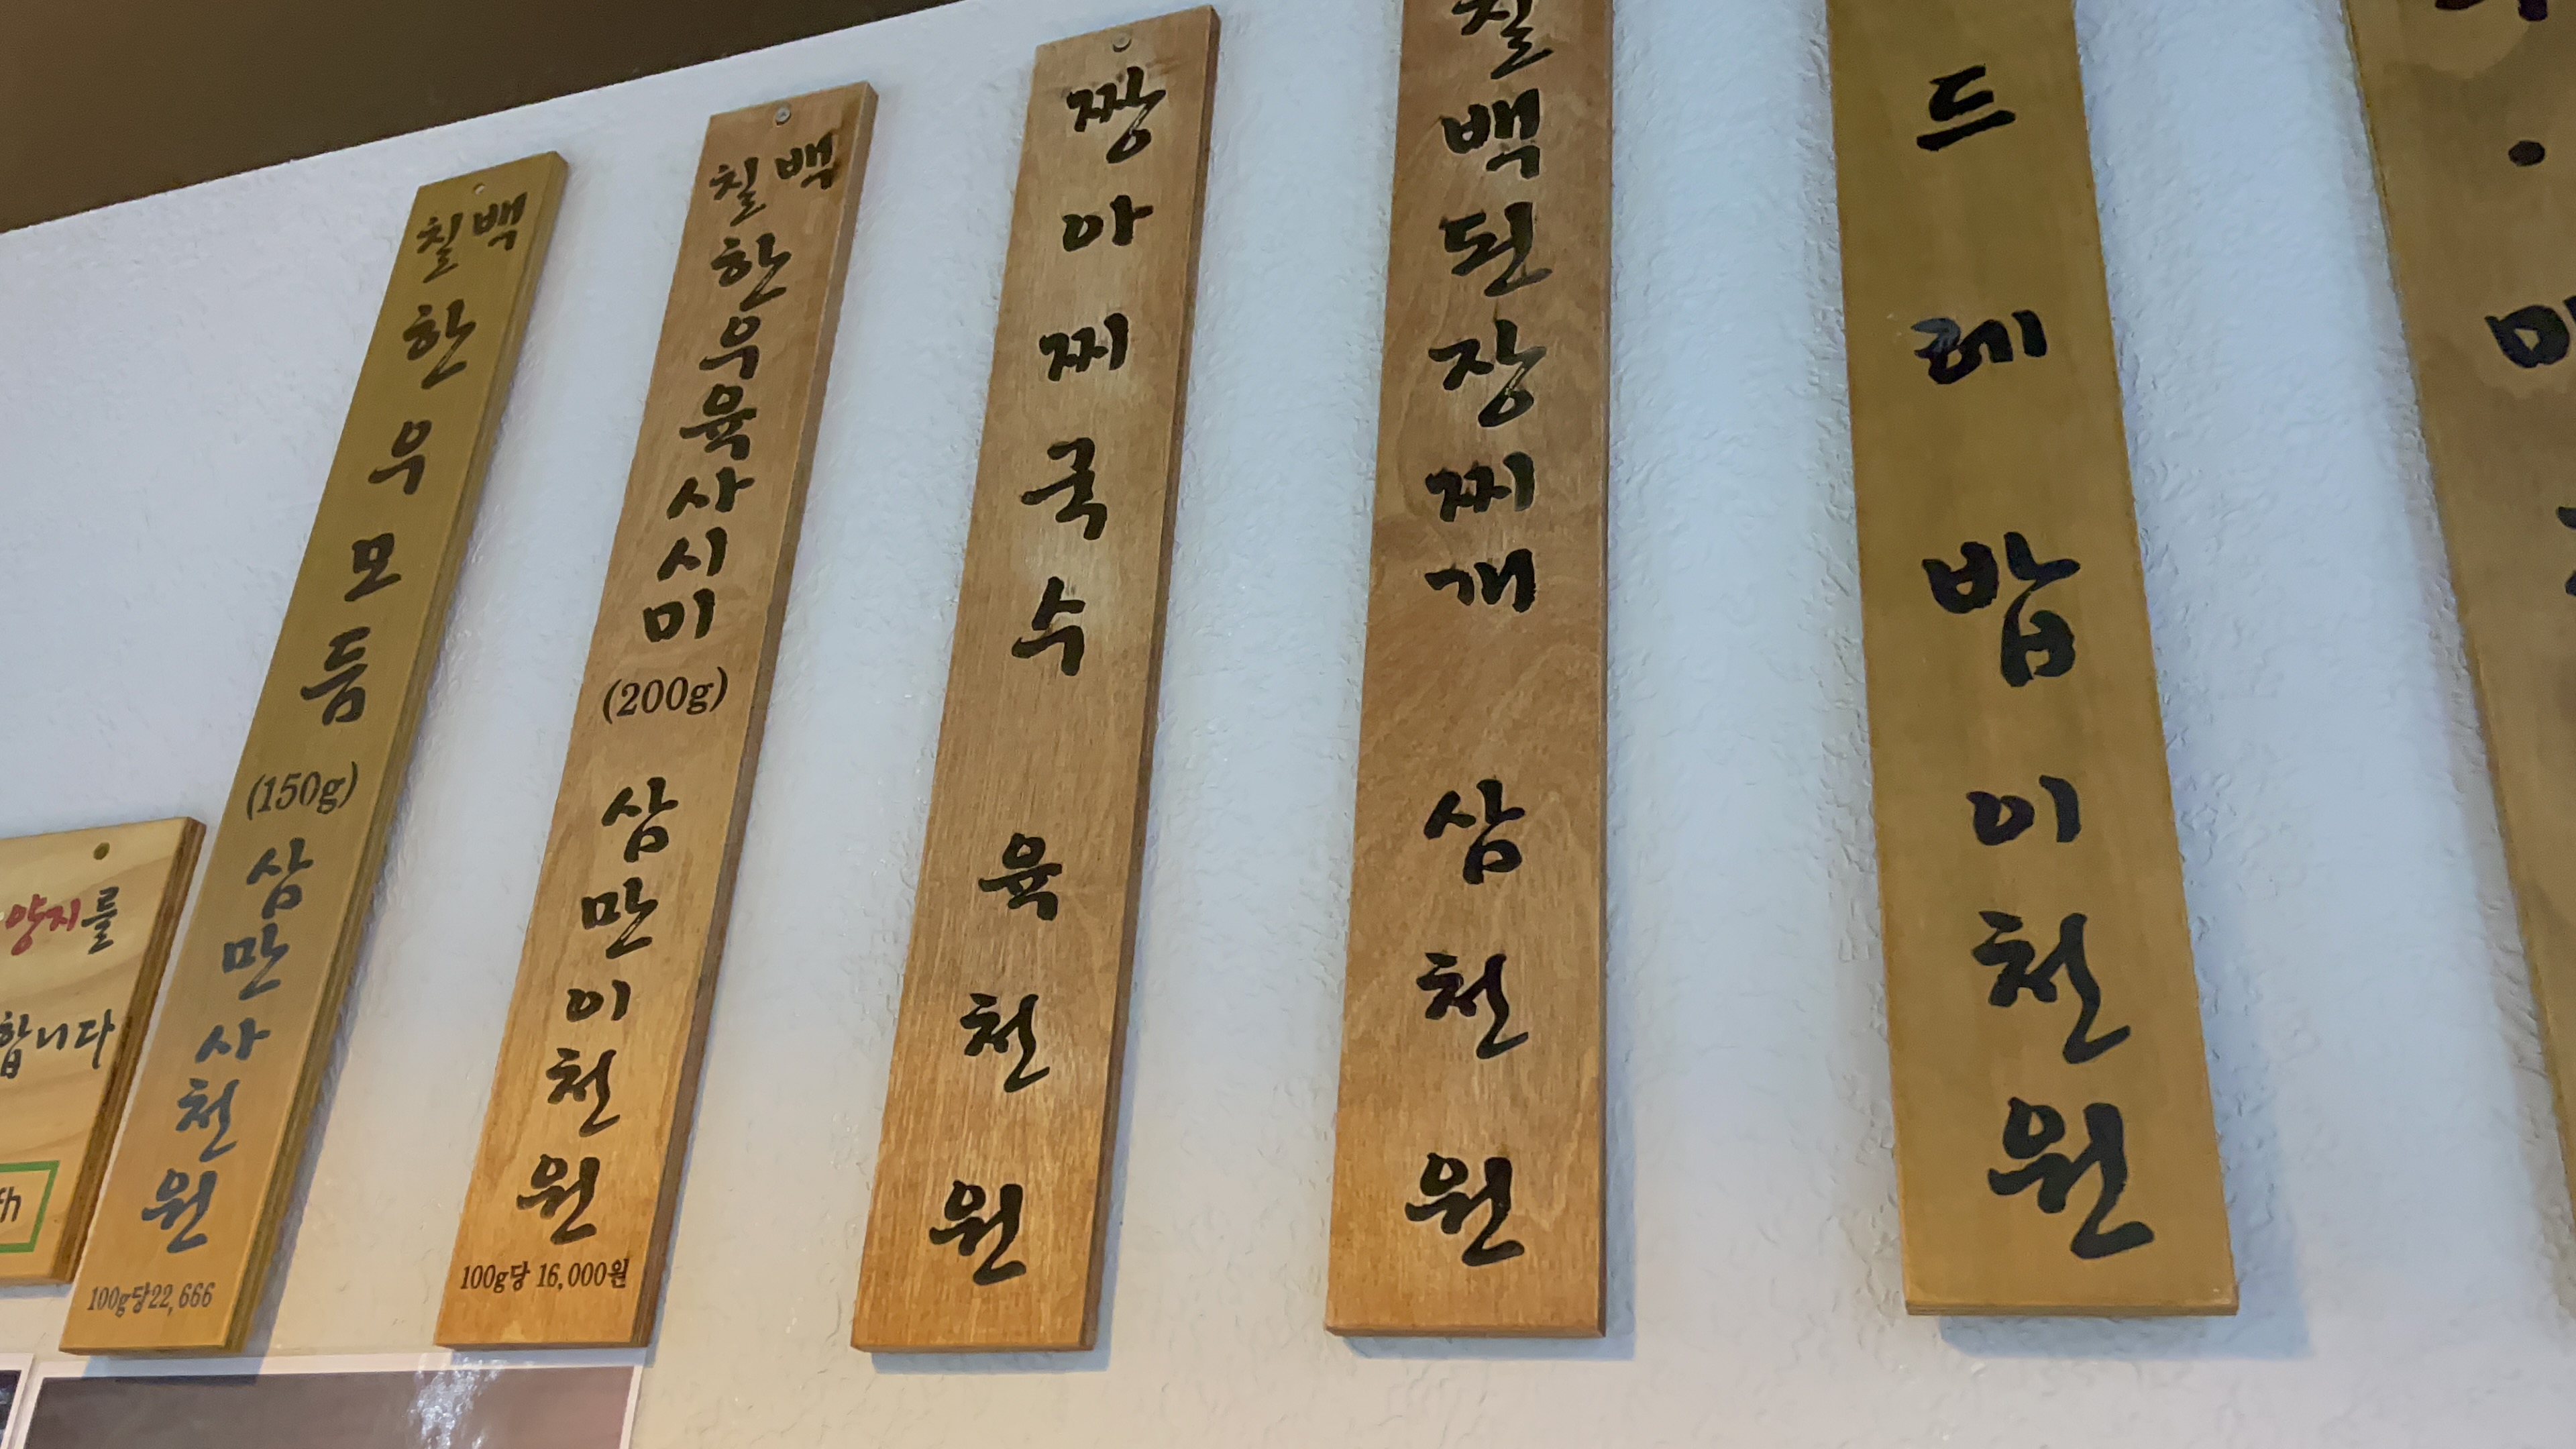 양지를
합니다
칠백
한우모듬
(150g)
삼만사천원
100g당22,666
칠백
한우육사시미
(200g)
삼만이천원
100g당 16,000원
짱아찌국수
육천원
칠백된장찌개
삼천원
드레밥
이천원